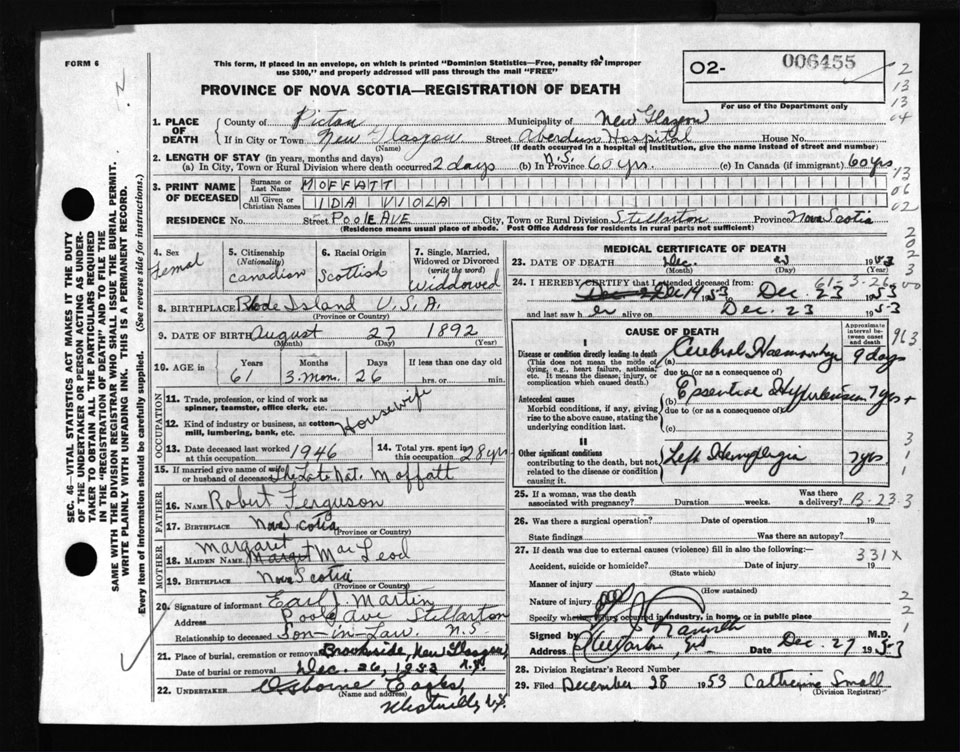 FORM 6
This form, if placed in an envelope, on which is printed "Dominion Statistics—Free, penalty for improper
use $300," and properly addressed will pass through the mail "FREE"
PROVINCE OF NOVA SCOTIA—REGISTRATION OF DEATH
O2- 006455
For use of the Department only
2
13
13
04
1. PLACE OF DEATH
County of Pictou Municipality of New Glasgow
If in City or Town New Glasgow Street Aberdeen Hospital House No.
(Name) (If death occurred in a hospital or institution, give the name instead of street and number)
2. LENGTH OF STAY (in years, months and days)
(a) In City, Town or Rural Division where death occurred 2 days (b) In Province N.S. 60 yrs. (c) In Canada (if immigrant) 60 yrs
3. PRINT NAME OF DECEASED
Surname or Last Name MOFFATT
All Given or Christian Names IDA VIOLA
13
06
02
RESIDENCE No. Street Poole Ave City, Town or Rural Division Stellarton Province Nova Scotia
(Residence means usual place of abode. Post Office Address for residents in rural parts not sufficient)
4. Sex Femal
5. Citizenship (Nationality) Canadian
6. Racial Origin Scottish
7. Single, Married, Widowed or Divorced (write the word) Widdowed
8. BIRTHPLACE Rhode Island U.S.A.
(Province or Country)
9. DATE OF BIRTH August 27 1892
(Month) (Day) (Year)
10. AGE in Years Months Days If less than one day old
61 3 mon. 26 hrs. or min.
OCCUPATION
11. Trade, profession, or kind of work as
spinner, teamster, office clerk, etc.
Housewife
12. Kind of industry or business, as cotton-
mill, lumbering, bank, etc.
13. Date deceased last worked at this occupation 1946
14. Total yrs. spent in this occupation 28 yrs
15. If married give name of wife or husband of deceased The Late Nat. Moffatt
FATHER
16. NAME Robert Ferguson
17. BIRTHPLACE Nova Scotia
(Province or Country)
MOTHER
18. MAIDEN NAME Margaret MacLeod
19. BIRTHPLACE Nova Scotia
(Province or Country)
20. Signature of informant Earl J. Martin
Address Poole Ave Stellarton
Relationship to deceased Son-in-Law. N.S.
21. Place of burial, cremation or removal Brookside, New Glasgow,
Date of burial or removal Dec. 26, 1953 N.S.
22. UNDERTAKER Osborne Eagles,
(Name and address)
Westville N.S.
MEDICAL CERTIFICATE OF DEATH
23. DATE OF DEATH Dec. 23 1953
(Month) (Day) (Year)
24. I HEREBY CERTIFY that I attended deceased from:
Dec 14 1953 to Dec. 23 1953
61-3-26
and last saw her alive on Dec. 23 1953
CAUSE OF DEATH
Approximate interval between onset and death
I
Disease or condition directly leading to death
(This does not mean the mode of dying, e.g., heart failure, asthenia, etc. It means the disease, injury, or complication which caused death.)
(a) Cerebral Haemorrhage 9 days
due to (or as a consequence of)
Antecedent causes
Morbid conditions, if any, giving rise to the above cause, stating the underlying condition last.
(b) Essential Hypertension 7 yrs +
due to (or as a consequence of)
(c)
II
Other significant conditions
contributing to the death, but not related to the disease or condition causing it.
Left Hemiplegia 7 yrs.
963
25. If a woman, was the death associated with pregnancy? Duration weeks. Was there a delivery?
B-23-3
26. Was there a surgical operation? Date of operation 19
State findings Was there an autopsy?
27. If death was due to external causes (violence) fill in also the following:
331X
Accident, suicide or homicide? Date of injury 19
(State which)
Manner of injury
(How sustained)
Nature of injury
Specify whether injury occurred in industry, in home, or in public place
Signed by M.D.
Address Stellarton, N.S. Date Dec. 27 1953
28. Division Registrar's Record Number
29. Filed December 28 1953 Catherine Small
(Division Registrar)
SEC. 46—VITAL STATISTICS ACT MAKES IT THE DUTY
OF THE UNDERTAKER OR PERSON ACTING AS UNDER-
TAKER TO OBTAIN ALL THE PARTICULARS REQUIRED
IN THE "REGISTRATION OF DEATH" AND FILE THE
SAME WITH THE DIVISION REGISTRAR WHO SHALL ISSUE THE BURIAL PERMIT.
WRITE PLAINLY WITH UNFADING INK. THIS IS A PERMANENT RECORD.
Every item of information should be carefully supplied. (See reverse side for instructions.)